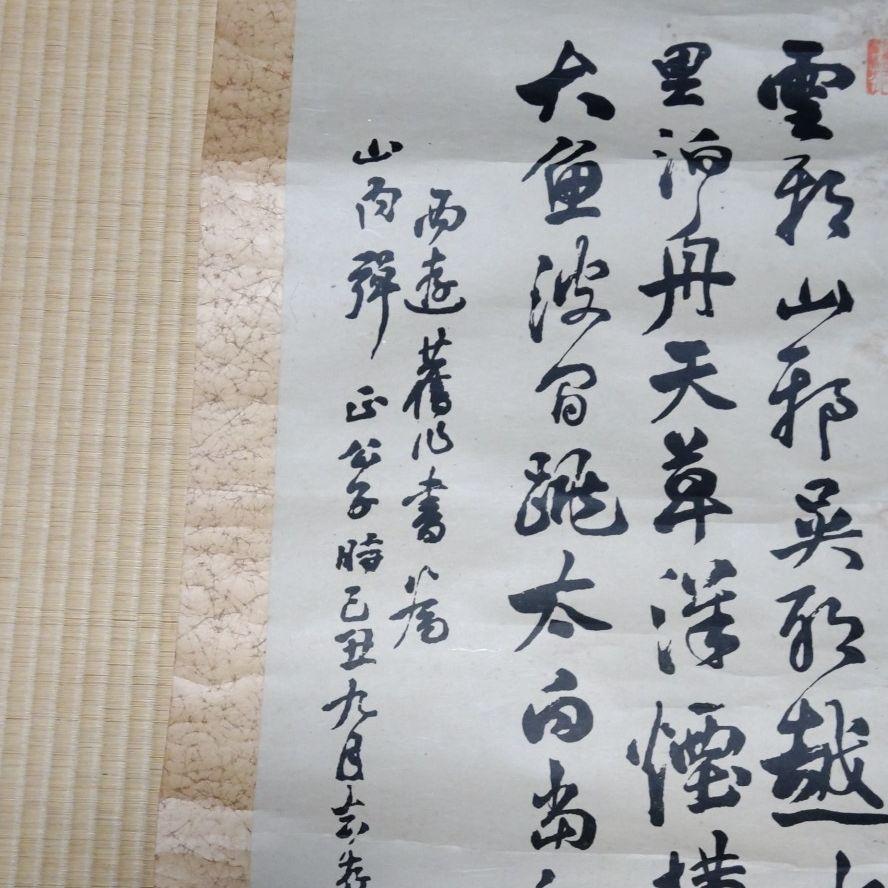 雲耶山耶呉耶越
里泊舟天草洋煙横
大魚波間跳太白當
西遊舊作書為
山内輝正公子時己丑九月